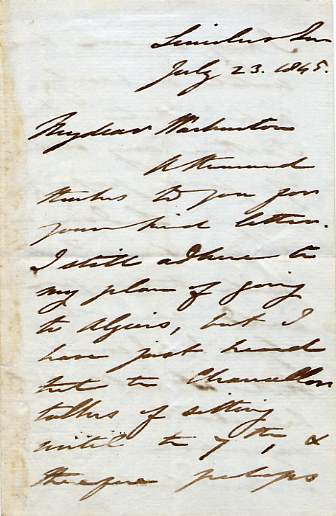 Lincolns Inn
July 23. 1845.
My dear Warburton
A thousand
thanks to you for
your kind letter.
I still adhere to
my plan of going
to Algiers, but I
have just heard
that the Chancellor
talks of sitting
until the 7th, &
therefore perhaps